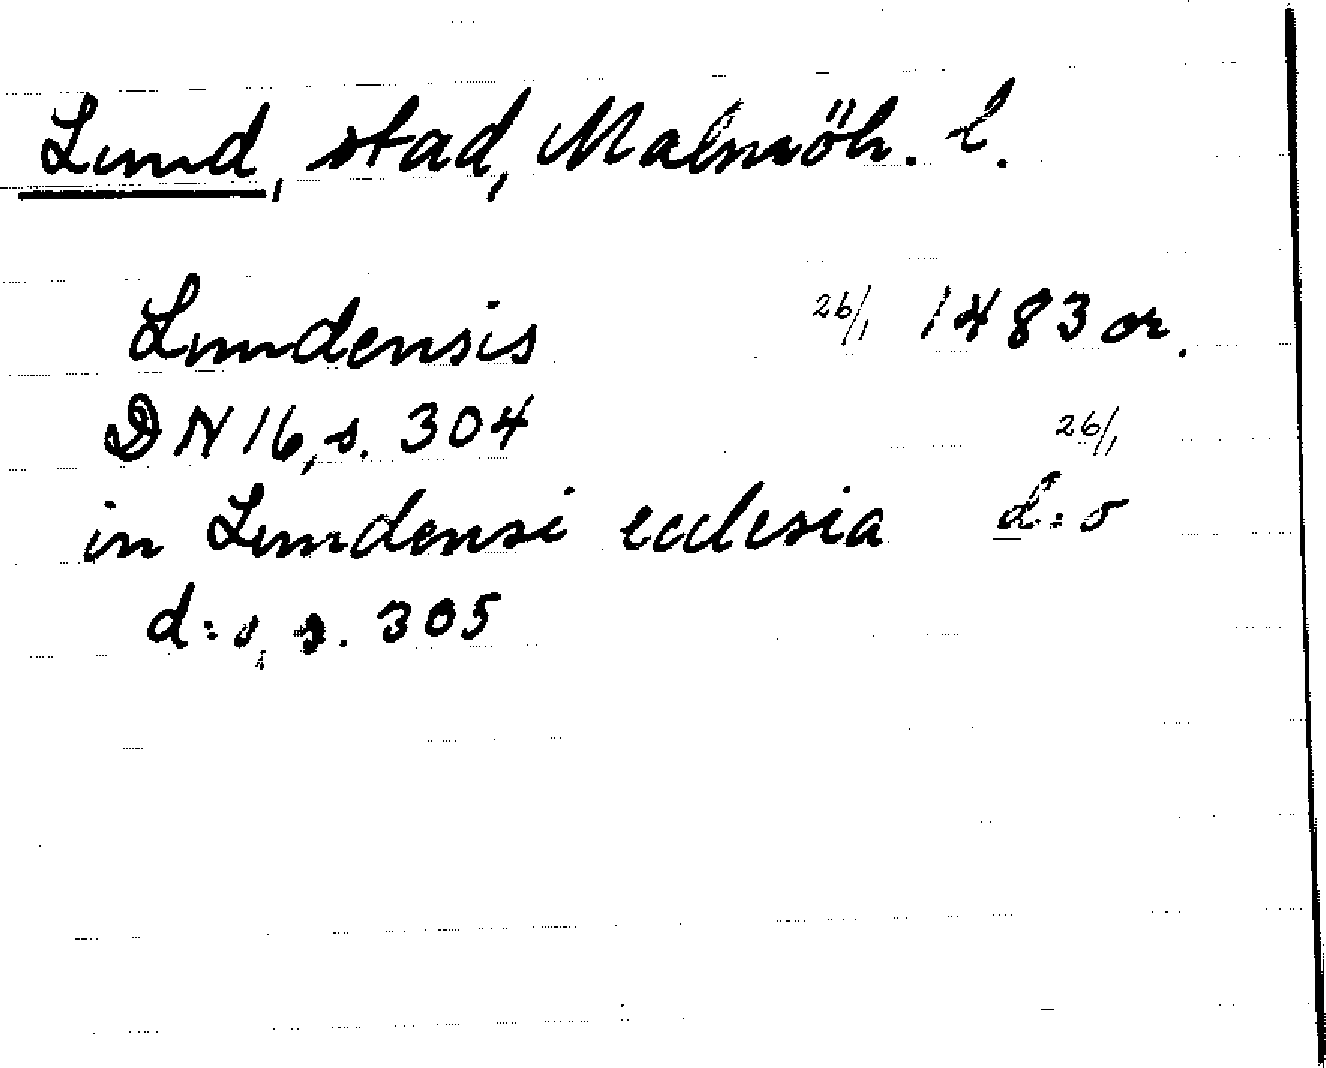 Lund, stad, Malmöh. l.
Lundensis 26/1 1483 or.
DN 16, s. 304 26/1
in Lundensi ecclesia d:o
d:o, s. 305